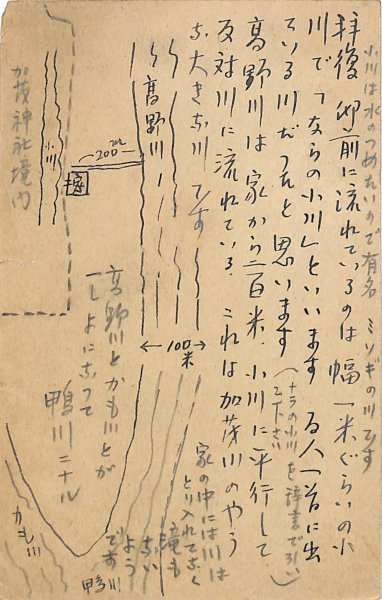 小川は水のつめたいので有名 ミソギの川です
拝復 御前に流れているのは幅一米ぐらいの小
川で「ならの小川」といいます 百人一首に出
ている川だったと思います
(ナラの小川を辞書で引いて下さい)
高野川は家から二百米、小川に平行して
反対川に流れている、これは加茂川のやう
な大きな川です
家の中には川は
とり入れてなく
滝も
ない
よう
です
高野川
200米
小川
加茂神社境内
100米
高野川とかも川とが
一しよになつて
鴨川ニナル
かも川
鴨川